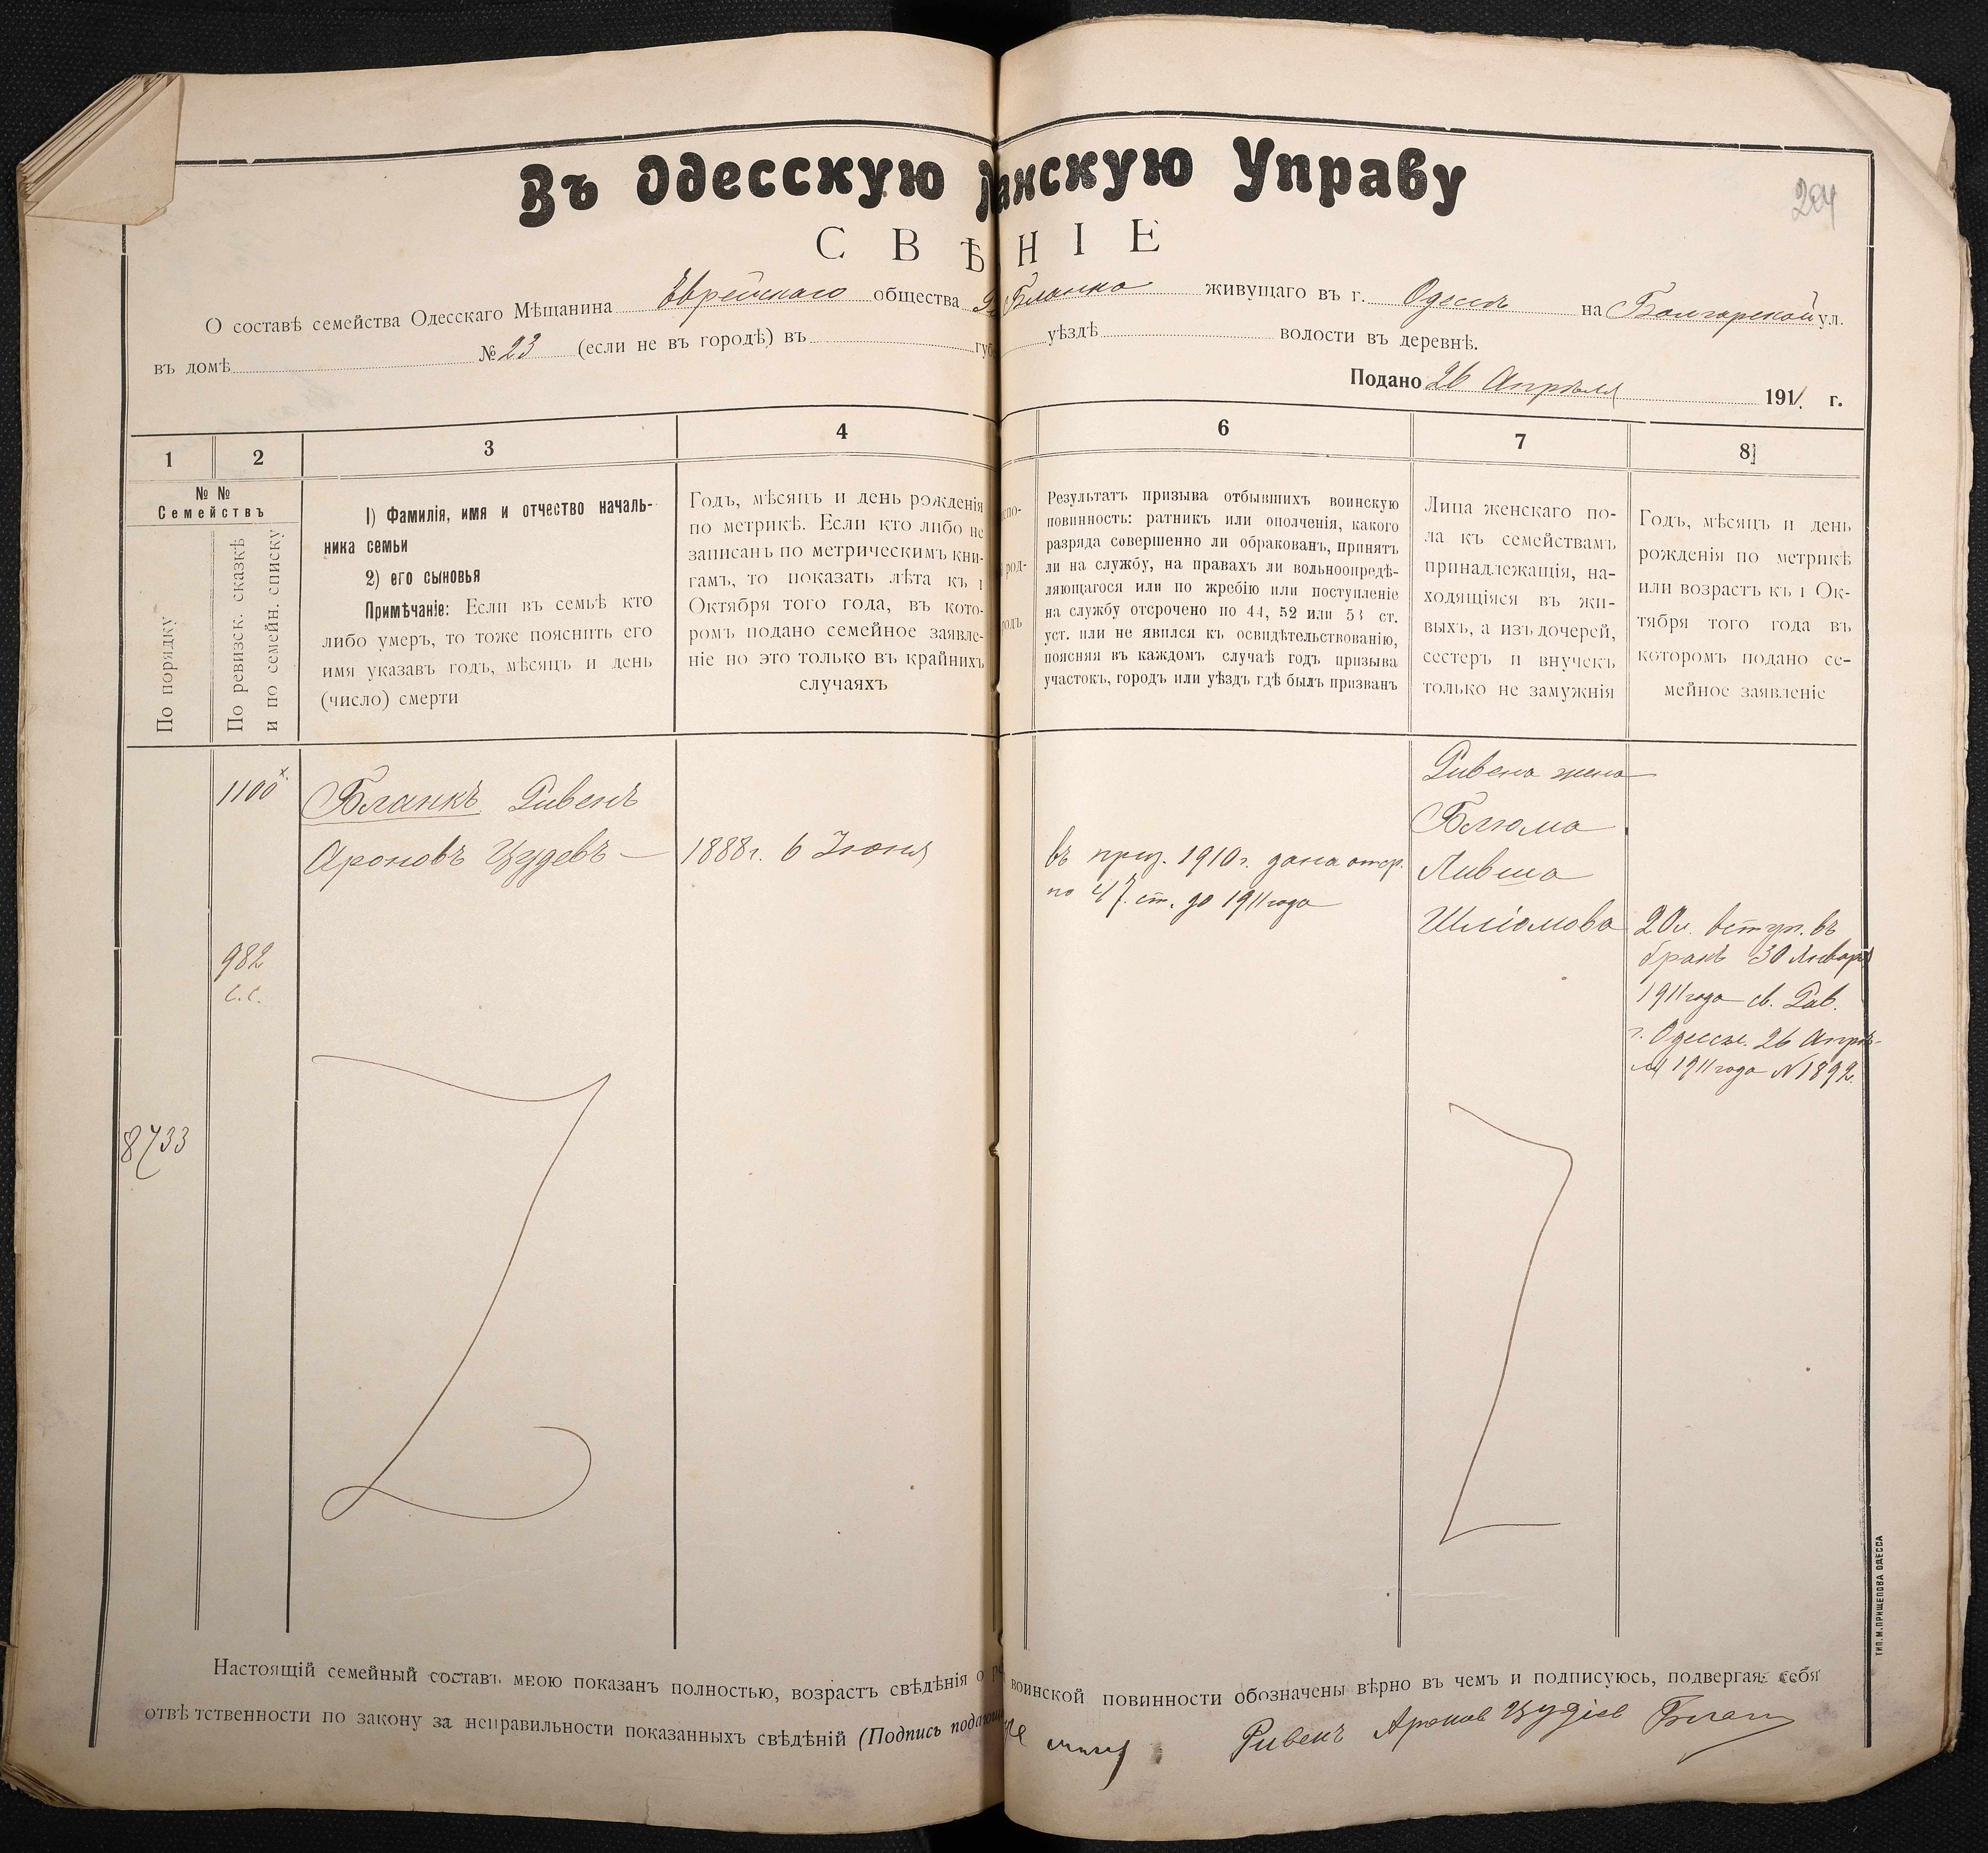 Въ Одесскую анскую Управу
294
СВѢНІЕ
О составѣ семейства Одесскаго Мѣщанина Еврейскаго общества Бланка живущаго въ г. Одессѣ на Болгарской ул.
въ домѣ № 23 (если не въ городѣ) въ губ уѣздѣ волости въ деревнѣ.
Подано 26 Апрѣля 1911 г.
1 2 3 4 6 7 8
№ №
Семействъ
По порядку
По ревизск. сказкѣ
и по семейн. списку
1) Фамилія, имя и отчество началь-
ника семьи
2) его сыновья
Примѣчаніе: Если въ семьѣ кто
либо умеръ, то тоже пояснить его
имя указавъ годъ, мѣсяцъ и день
(число) смерти
Годъ, мѣсяцъ и день рожденія
по метрикѣ. Если кто либо не
записанъ по метрическимъ кни-
гамъ, то показать лѣта къ 1
Октября того года, въ кото-
ромъ подано семейное заявле-
ніе но это только въ крайнихъ
случаяхъ
спо-
род-
родъ
Результатъ призыва отбывшихъ воинскую
повинность: ратникъ или ополченія, какого
разряда совершенно ли обракованъ, принятъ
ли на службу, на правахъ ли вольноопредѣ-
ляющагося или по жребію или поступленіе
на службу отсрочено по 44, 52 или 53 ст.
уст. или не явился къ освидѣтельствованію,
поясняя въ каждомъ случаѣ годъ призыва
участокъ, городъ или уѣздъ гдѣ былъ призванъ
Лица женскаго по-
ла къ семействамъ
принадлежащія, на-
ходящіяся въ жи-
выхъ, а изъ дочерей,
сестеръ и внучекъ
только не замужнія
Годъ, мѣсяцъ и день
рожденія по метрикѣ
или возрастъ къ 1 Ок-
тября того года въ
которомъ подано се-
мейное заявленіе
1100 х.
Бланкъ Ривенъ
Ароновъ Цудевъ
1888г. 6 Іюня
въ приз. 1910г. дана отср.
по 47 ст. до 1911 года
Ривена жена
Блюма
Ливша
Шліомова
20л. вступ. въ
бракъ 30 Января
1911 года св. Рав.
г. Одессы 26 Апрѣ-
ля 1911 года № 1892
982
с.с.
8733
Настоящій семейный составъ мною показанъ полностью, возрастъ свѣдѣнія о воинской повинности обозначены вѣрно въ чемъ и подписуюсь, подвергая себя
отвѣтственности по закону за неправильности показанныхъ свѣдѣній (Подпись
Ривенъ Аронов Цудіев Бланк
ТИП. М. ПРИЩЕПОВА ОДЕССА